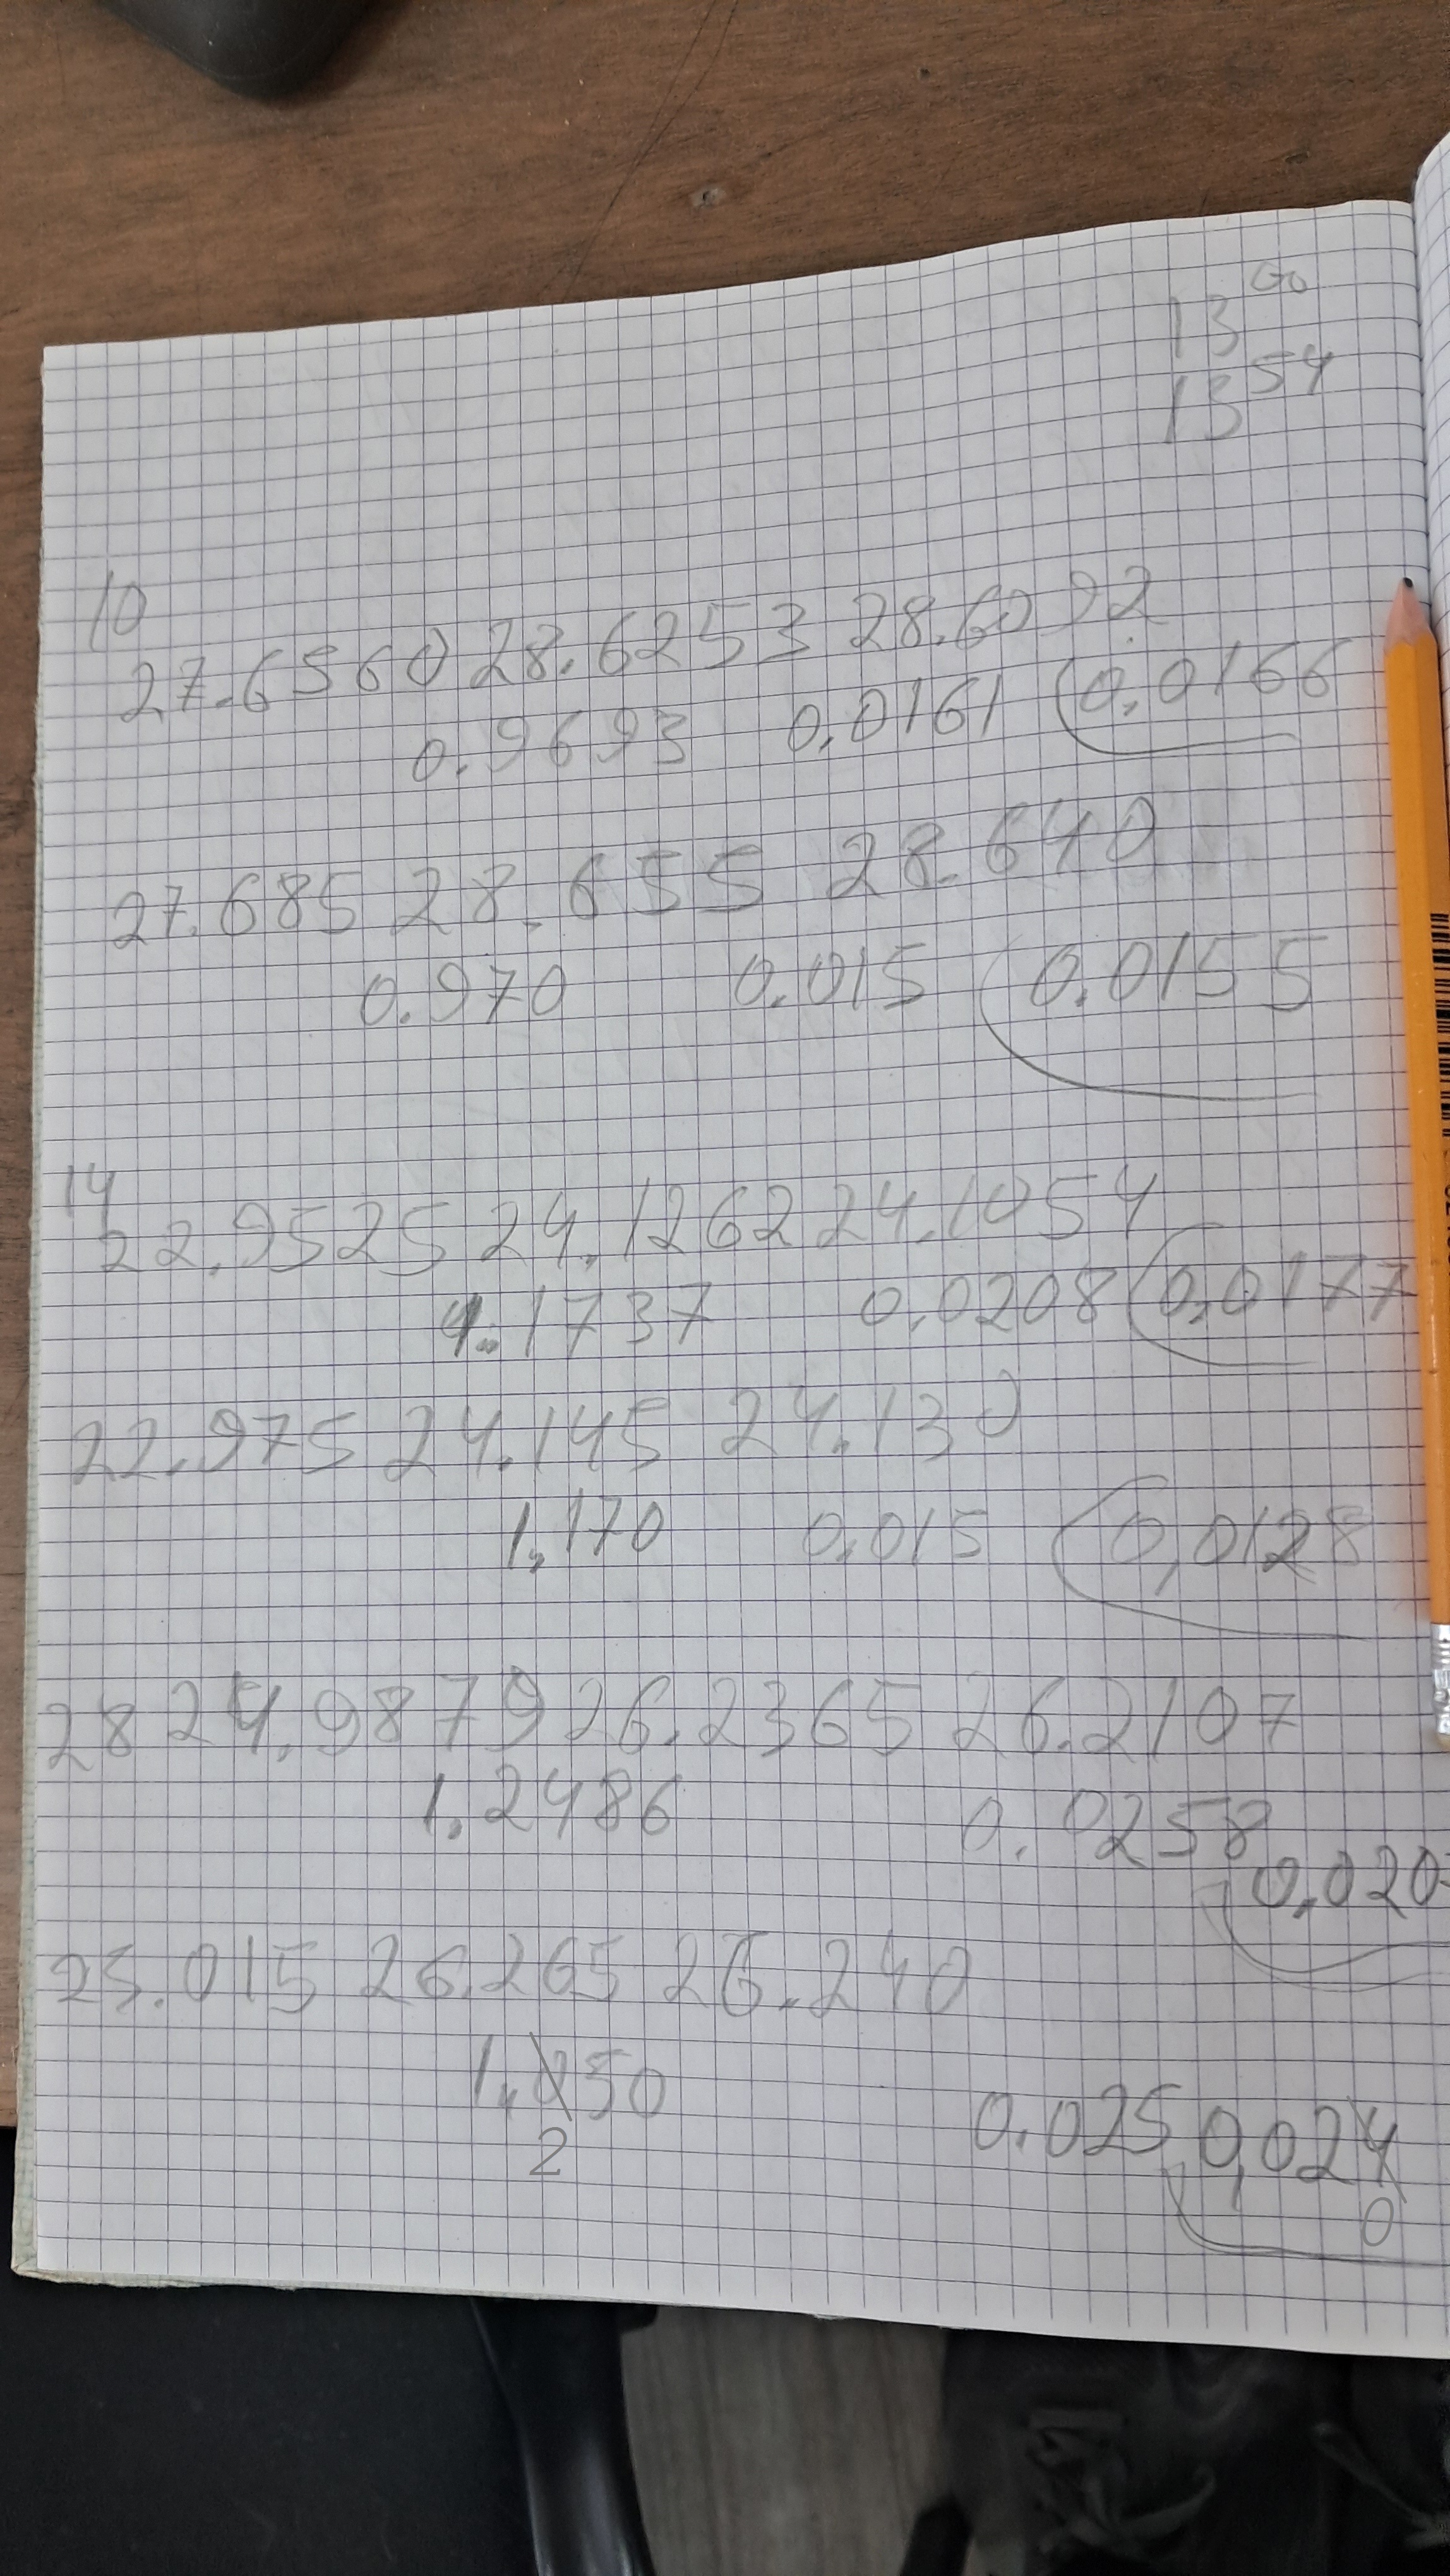 13⁰⁰
13⁵⁴
10
27.6560 28.6253 28.6092
0.9693 0,0161 0,0166
27.685 28.655 28.640
0.970 0.015 0.0155
14
22.9525 24.1262 24.1054
1.1737 0,0208 0,0177
22.975 24.145 24.130
1,170 0,015 0,0128
28 24.9879 26.2365 26.2107
1.2486 0.0258
0,020
25.015 26.265 26.240
1.050
2
0.025 0,024
0